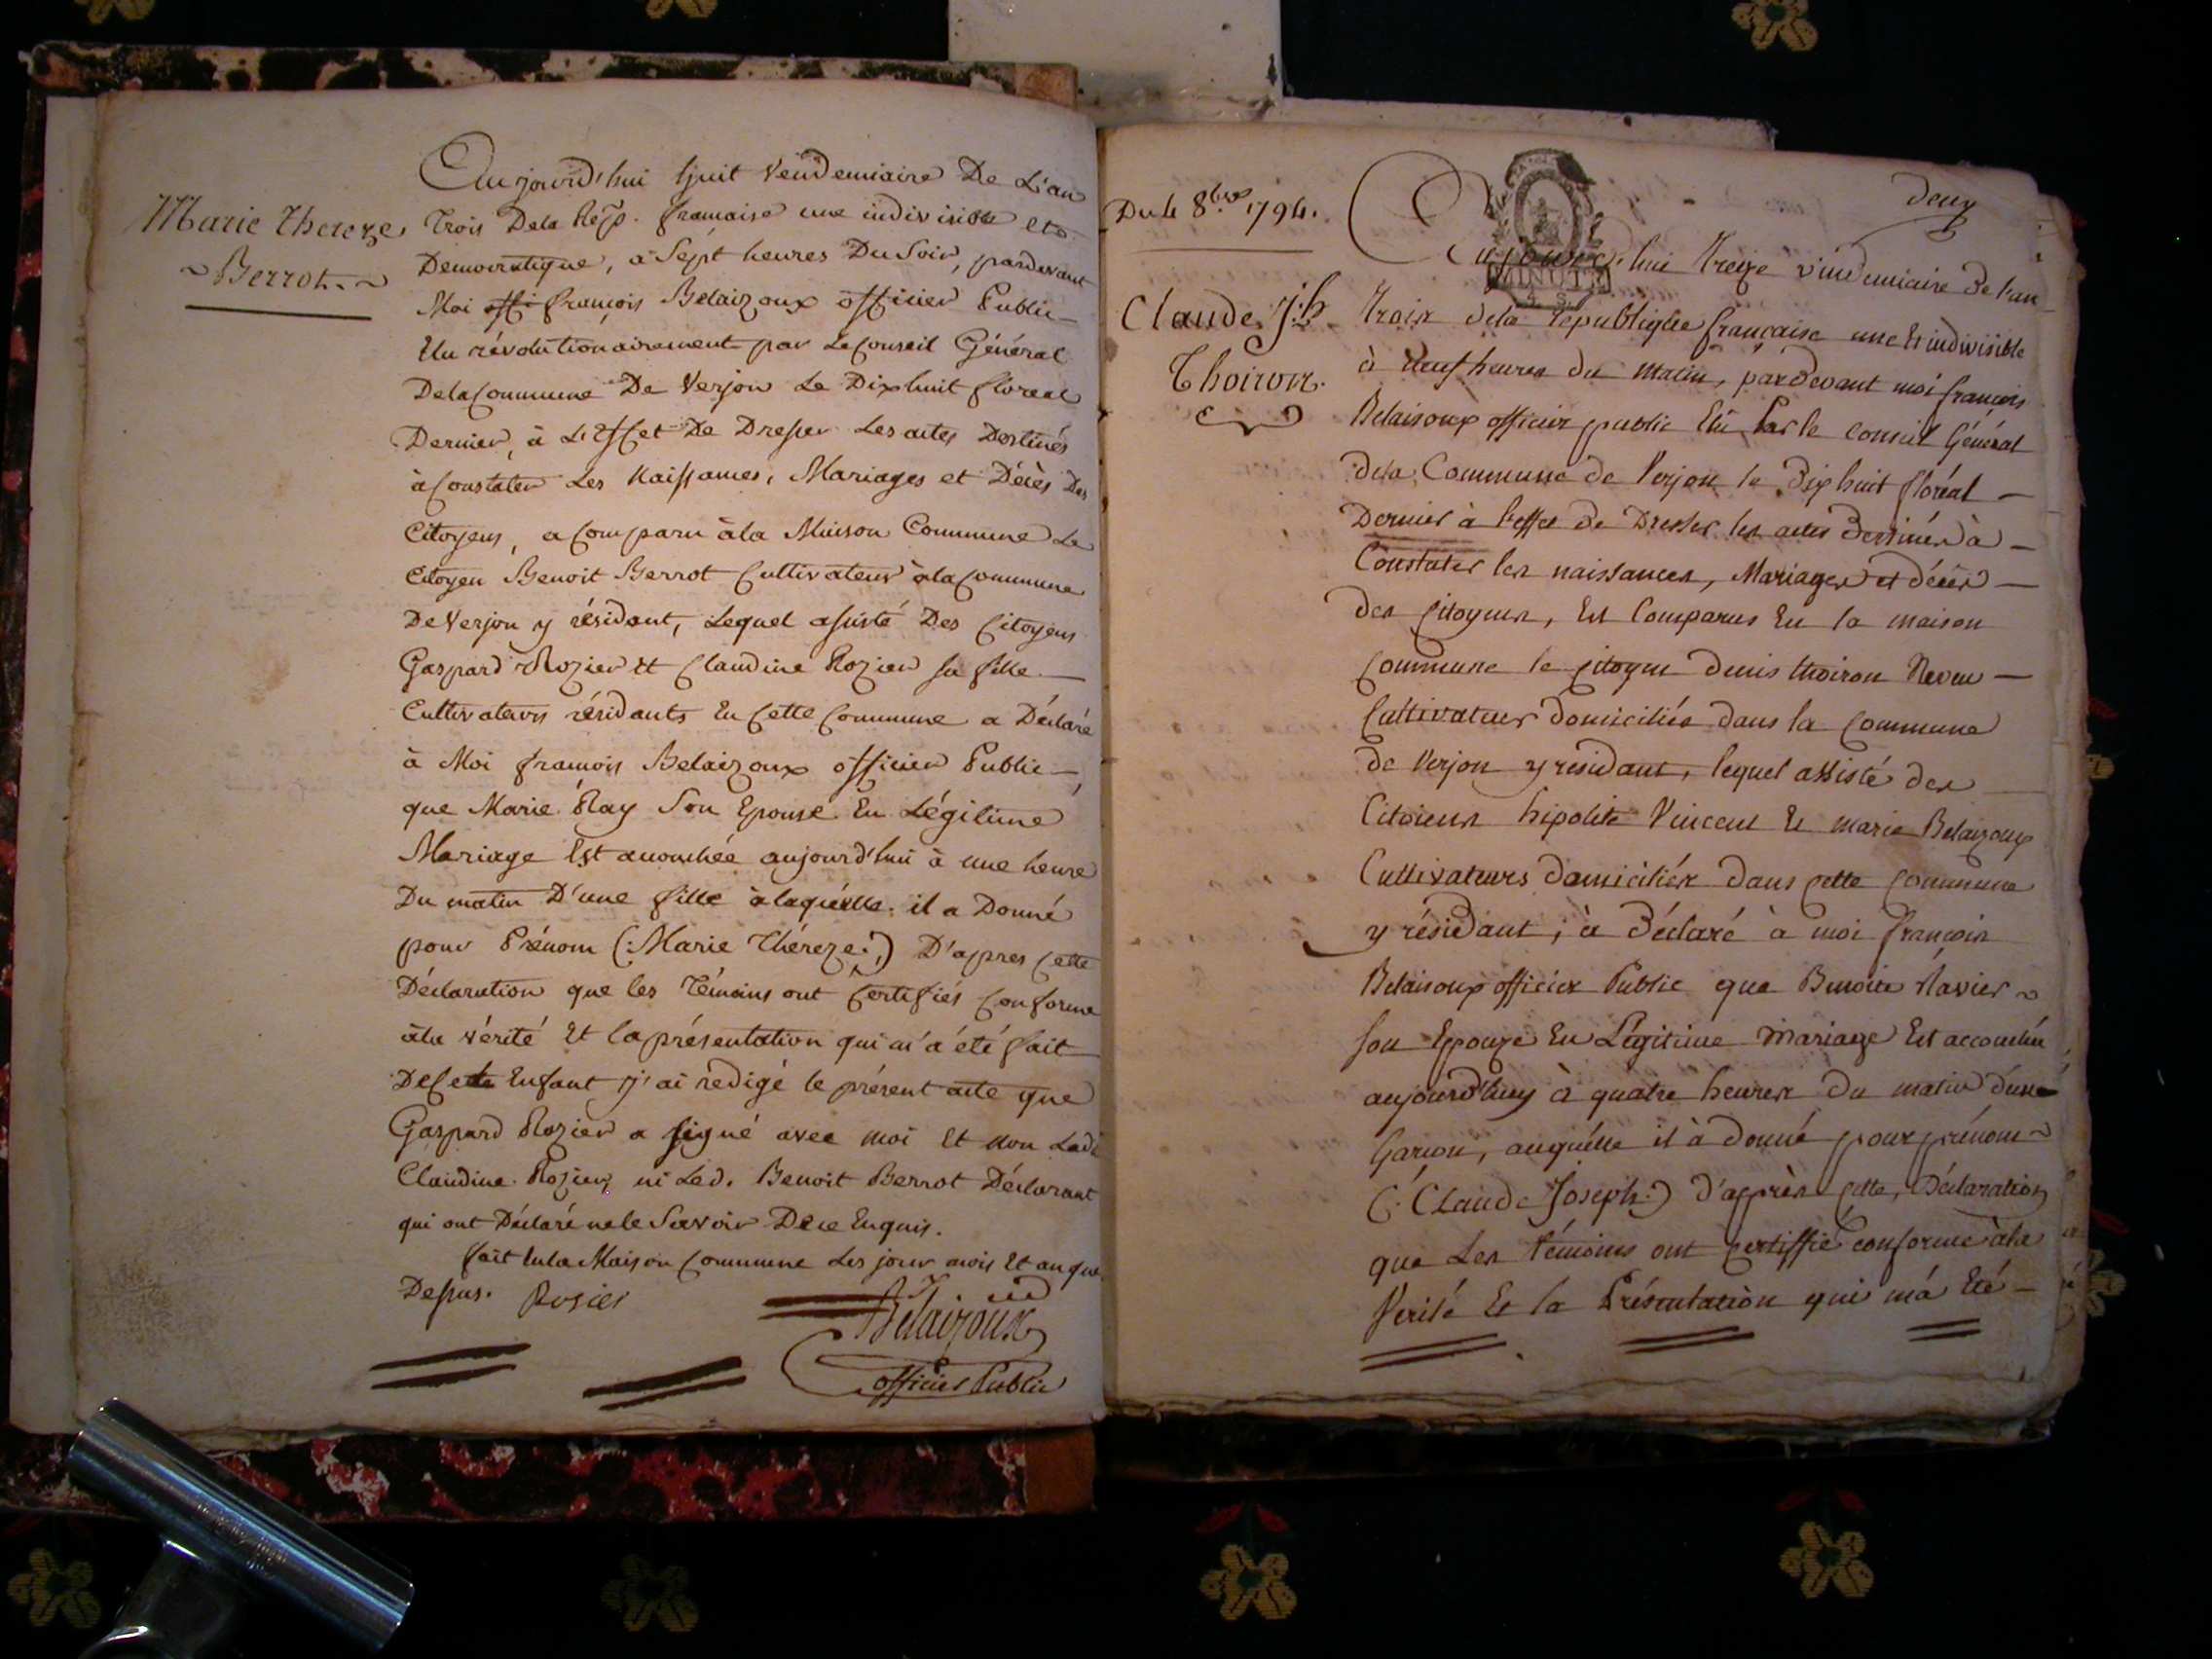 Marie Thereze
Berrot.
Aujourd'hui huit Vendemiaire De L'an
Trois Dela Rép. française une indivisible et
Democratique, à Sept heures Du Soir, pardevant
Moi offi françois Belaizoux officier Public
Elu révolutionairement par Le Conseil Général
Dela Commune De Verjon Le Dix huit floreal
Dernier, à L'Effet De Dresser Les actes Destinés
à Constater Les Naissances, Mariages et Décès Des
Citoyens, a Comparu à la Maison Commune Le
Citoyen Benoit Berrot Cultivateur à la Commune
De Verjon y résidant, Lequel assisté Des Citoyens
Gaspard Rozier Et Claudine Rozier sa fille
Cultivateurs résidants En Cette Commune a Déclaré
à Moi françois Belaizoux officier Public,
que Marie Ray Son Epouse En Légitime
Mariage Est accouchée aujourd'hui à une heure
Du matin D'une fille à laquelle il a Donné
pour Prénom (: Marie Théreze :) D'apres Cette
Déclaration que les Témoins ont Certifiés Conforme
à la vérité Et la présentation qui m'a été fait
De Cette Enfant j'ai redigé le présent acte que
Gaspard Rozier a signé avec moi Et non Lade
Claudine Rozier ni Led. Benoit Berrot Déclarant
qui ont Déclaré ne le Savoir De ce Enquis.
fait En la Maison Commune Les jour mois Et an que
Dessus. Rosier
Belaizoux
officier Public
deux
Du 4 8bre 1794.
Claude Jph
Thoiron.
MINUTE
4. S.
Aujourd'hui treize vindemiaire de l'an
trois dela république française une et indivisible
à neuf heures du matin, pardevant moi françois
Belaisoux officier public Elu Par le conseil Général
dela Commune de Verjon le Dix huit floréal
Dernier à l'effet de Dresser les actes destinés à
Constater les naissances, Mariages et décès
des citoyens, Est Comparus En la maison
commune le citoyen denis thoiron
Cultivateur domiciliés dans la commune
de Verjon y residant, lequel assisté des
Citoiens hipolite Vincent Et marie Belaizoux
Cultivateurs domiciliés dans cette commune
y résidant, à déclaré à moi françois
Belaisoux officier Public que Benoite Ravier
son Epouze En Légitime mariage Est accouchée
aujourd'huy à quatre heures du matin d'une
Garçon, auquélle il à donné pour prénom
(: CLaude Joseph :) d'après cette, Déclaration
que Les témoins ont certiffié conforme à la
Verité Et la Présentation qui m'a Eté